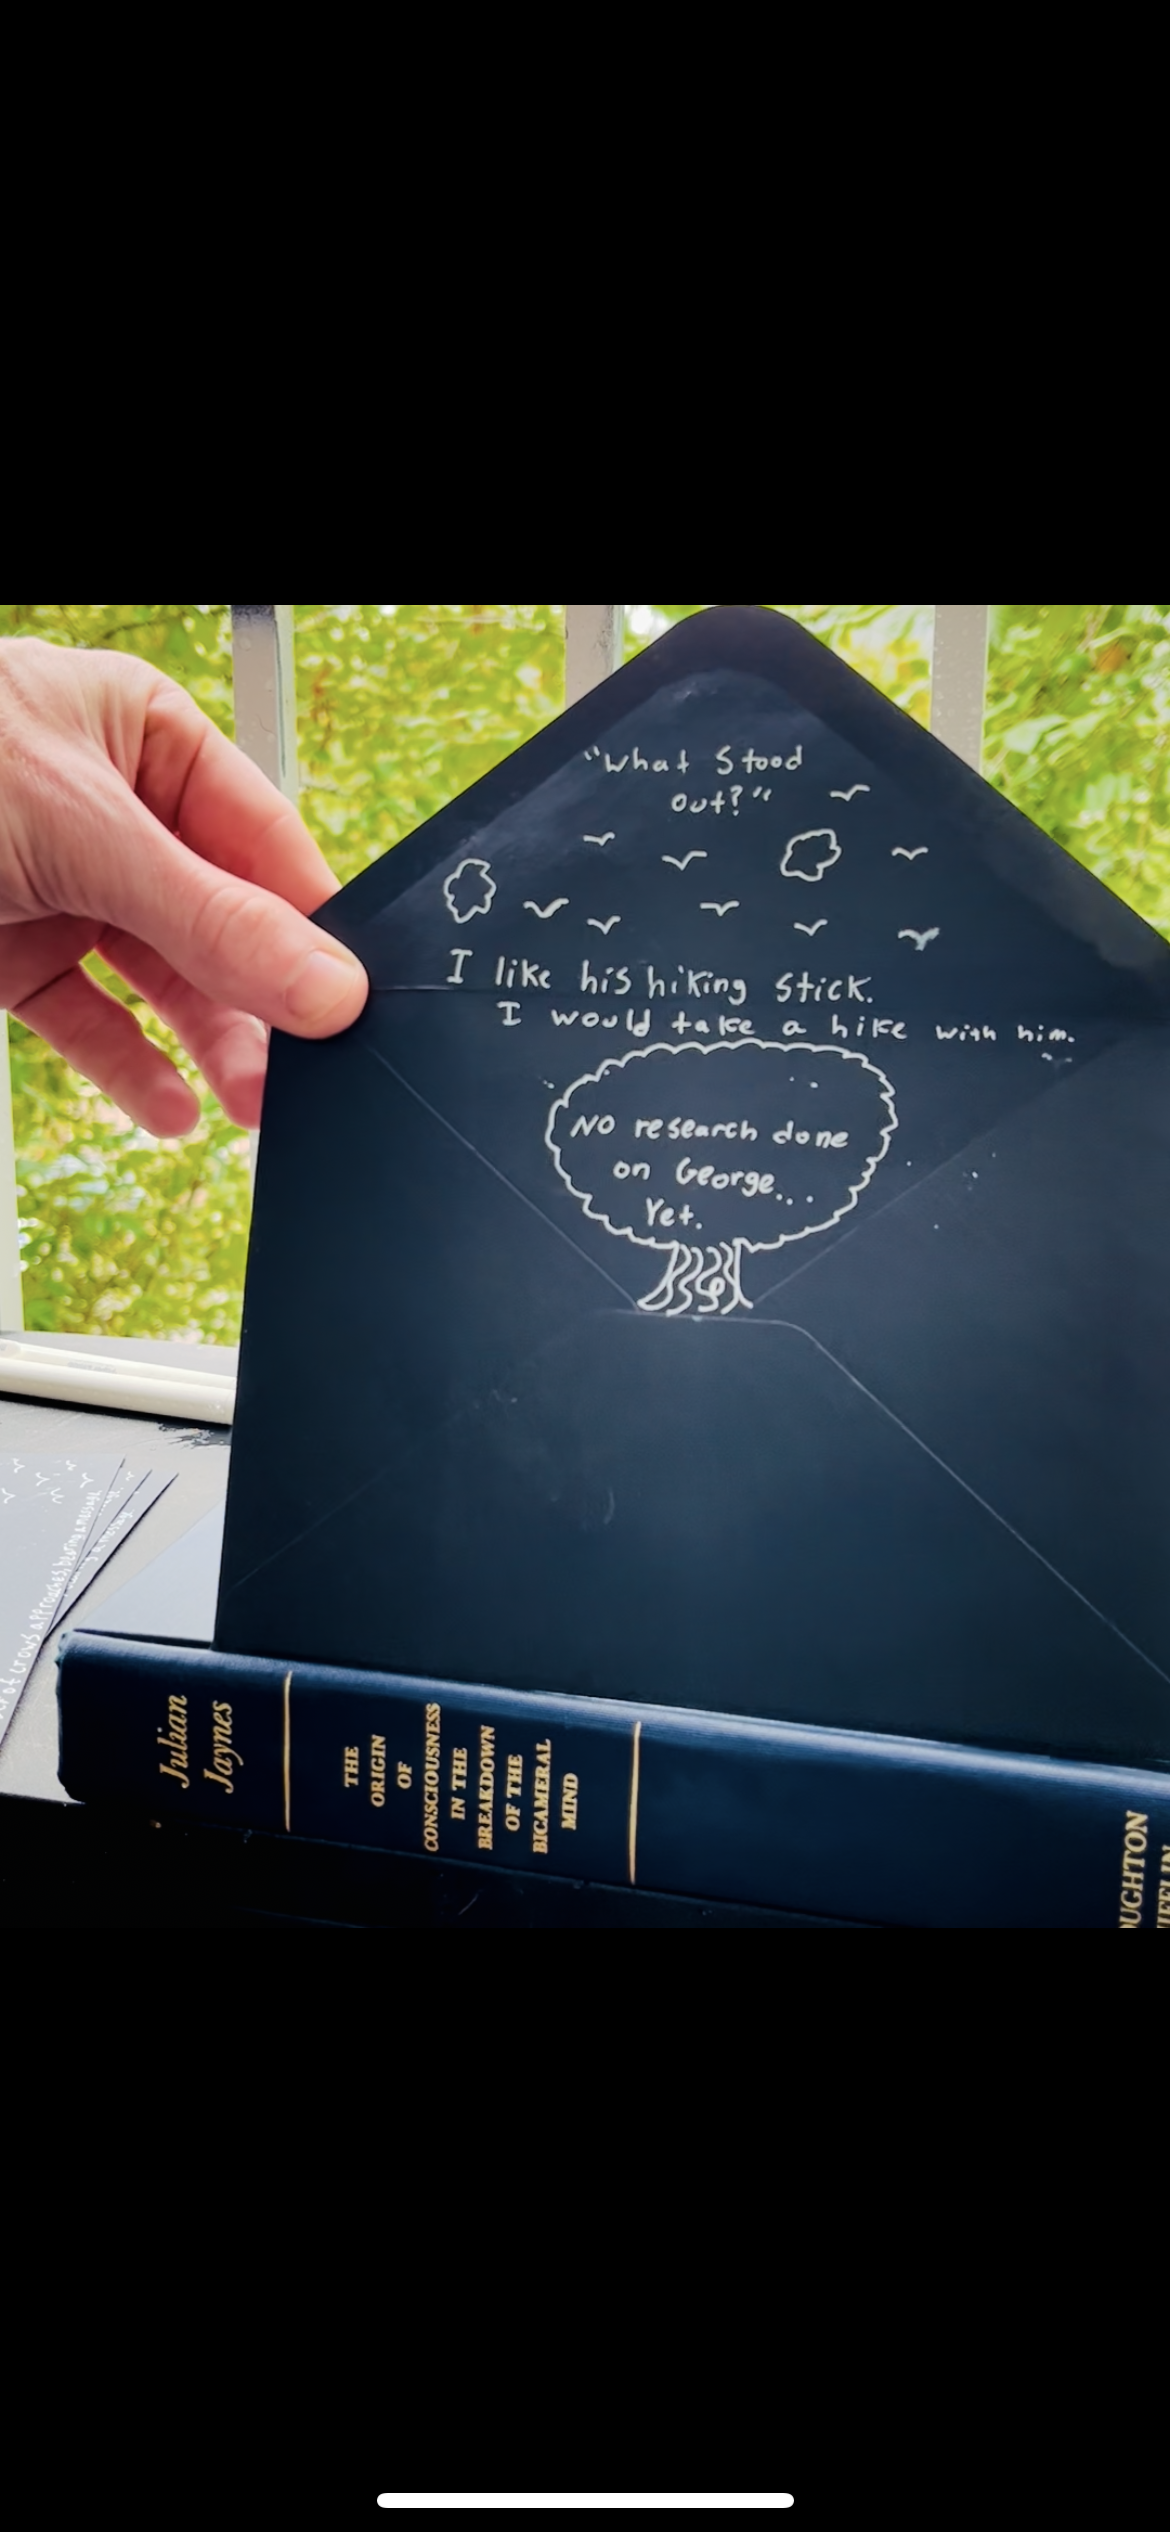 "What Stood
out?"
I like his hiking stick.
I would take a hike with him.
No research done
on George...
Yet.
of crows approaches, bearing a message
a message.
Julian
Jaynes
THE
ORIGIN
OF
CONSCIOUSNESS
IN THE
BREAKDOWN
OF THE
BICAMERAL
MIND